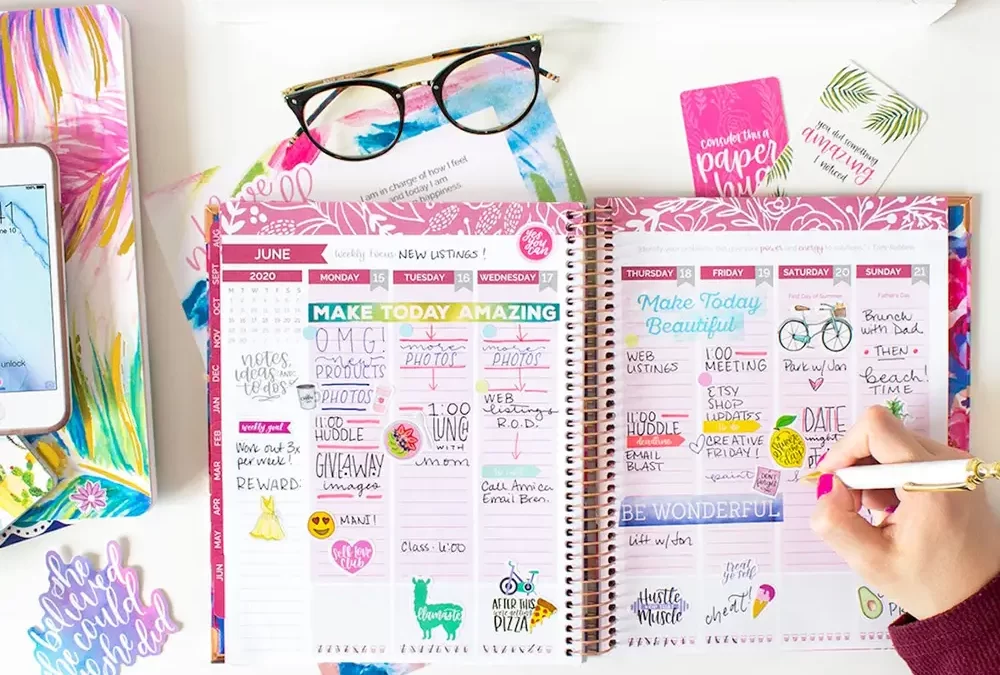 I am in charge of how I feel
and today I am
happiness
consider this a
paper
hug
you did something
amazing
I noticed
AUG
SEPT
OCT
NOV
DEC
JAN
FEB
MAR
APR
MAY
JUN
JUNE
Weekly Focus NEW LISTINGS!
yes
you
can
2020
M T W T F S S
notes,
ideas and
to dos
weekly goal
WORK OUT 3x
per week!
REWARD:
MONDAY 15
TUESDAY 16
WEDNESDAY 17
MAKE TODAY AMAZING
OMG!
new
PRODUCTS
PHOTOS
11:00
HUDDLE
GIVEAWAY
images
MANI!
Self-love
club
more
PHOTOS
1:00
LUNCH
WITH
mom
Class · 6:00
llamaste
more
PHOTOS
WEB
listings
R.O.D.
Call America
Email Bren.
AFTER THIS
we're getting
PIZZA
THURSDAY 18
FRIDAY 19
SATURDAY 20
SUNDAY 21
Make Today
Beautiful
WEB
LISTINGS
11:00
HUDDLE
deadline
EMAIL
BLAST
BE WONDERFUL
Lift w/Jon
Hustle
Muscle
1:00
MEETING
ETSY
SHOP
UPDATES
to do
CREATIVE
FRIDAY!
paint
treat
yo self
cheat!
First Day of Summer
Park w/Jon
DATE
night
Father's Day
BRUNCH
with Dad
THEN
beach!
TIME
unlock
she
believed
she could
so she did